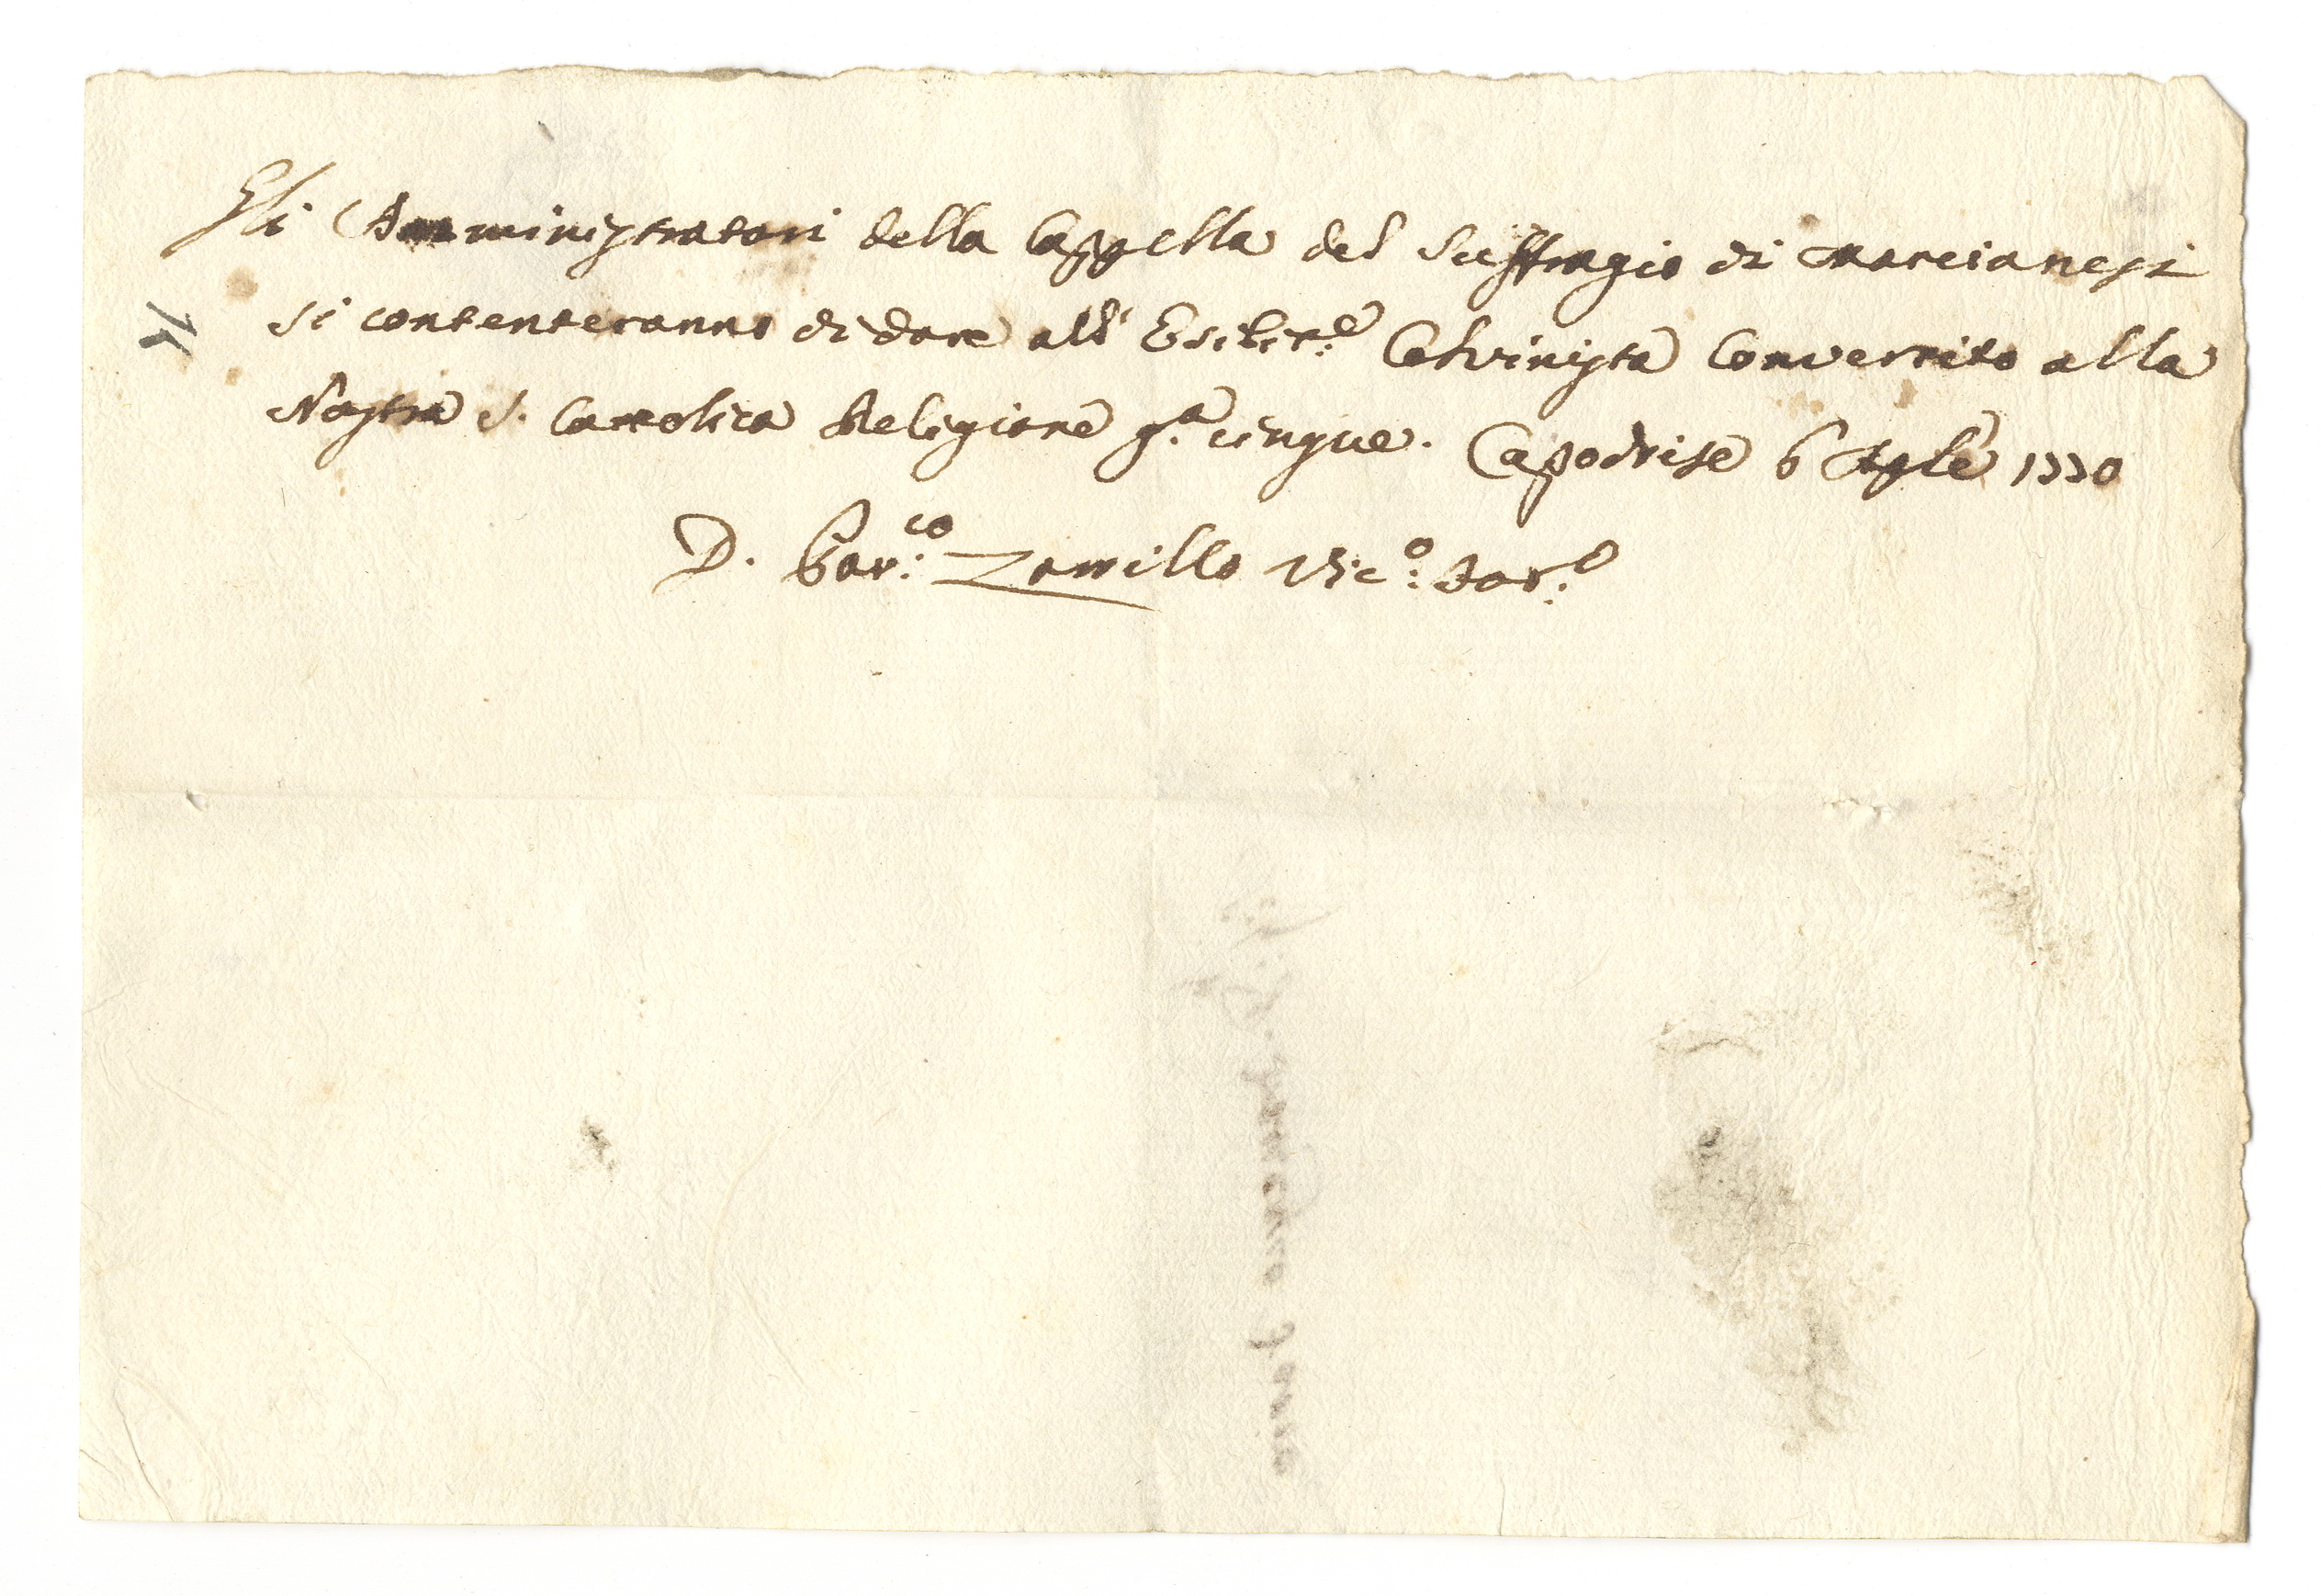 Gli Amministratori della Cappella del Suffragio di Marcianesi
si contenteranno di dare all' Esibit.e Calvinista Convertito alla
Nostra S. Cattolica Religione g.a cinque. Capodrise 6 Aple 1770
D. Bar.co Zamillo Vic.o For.e